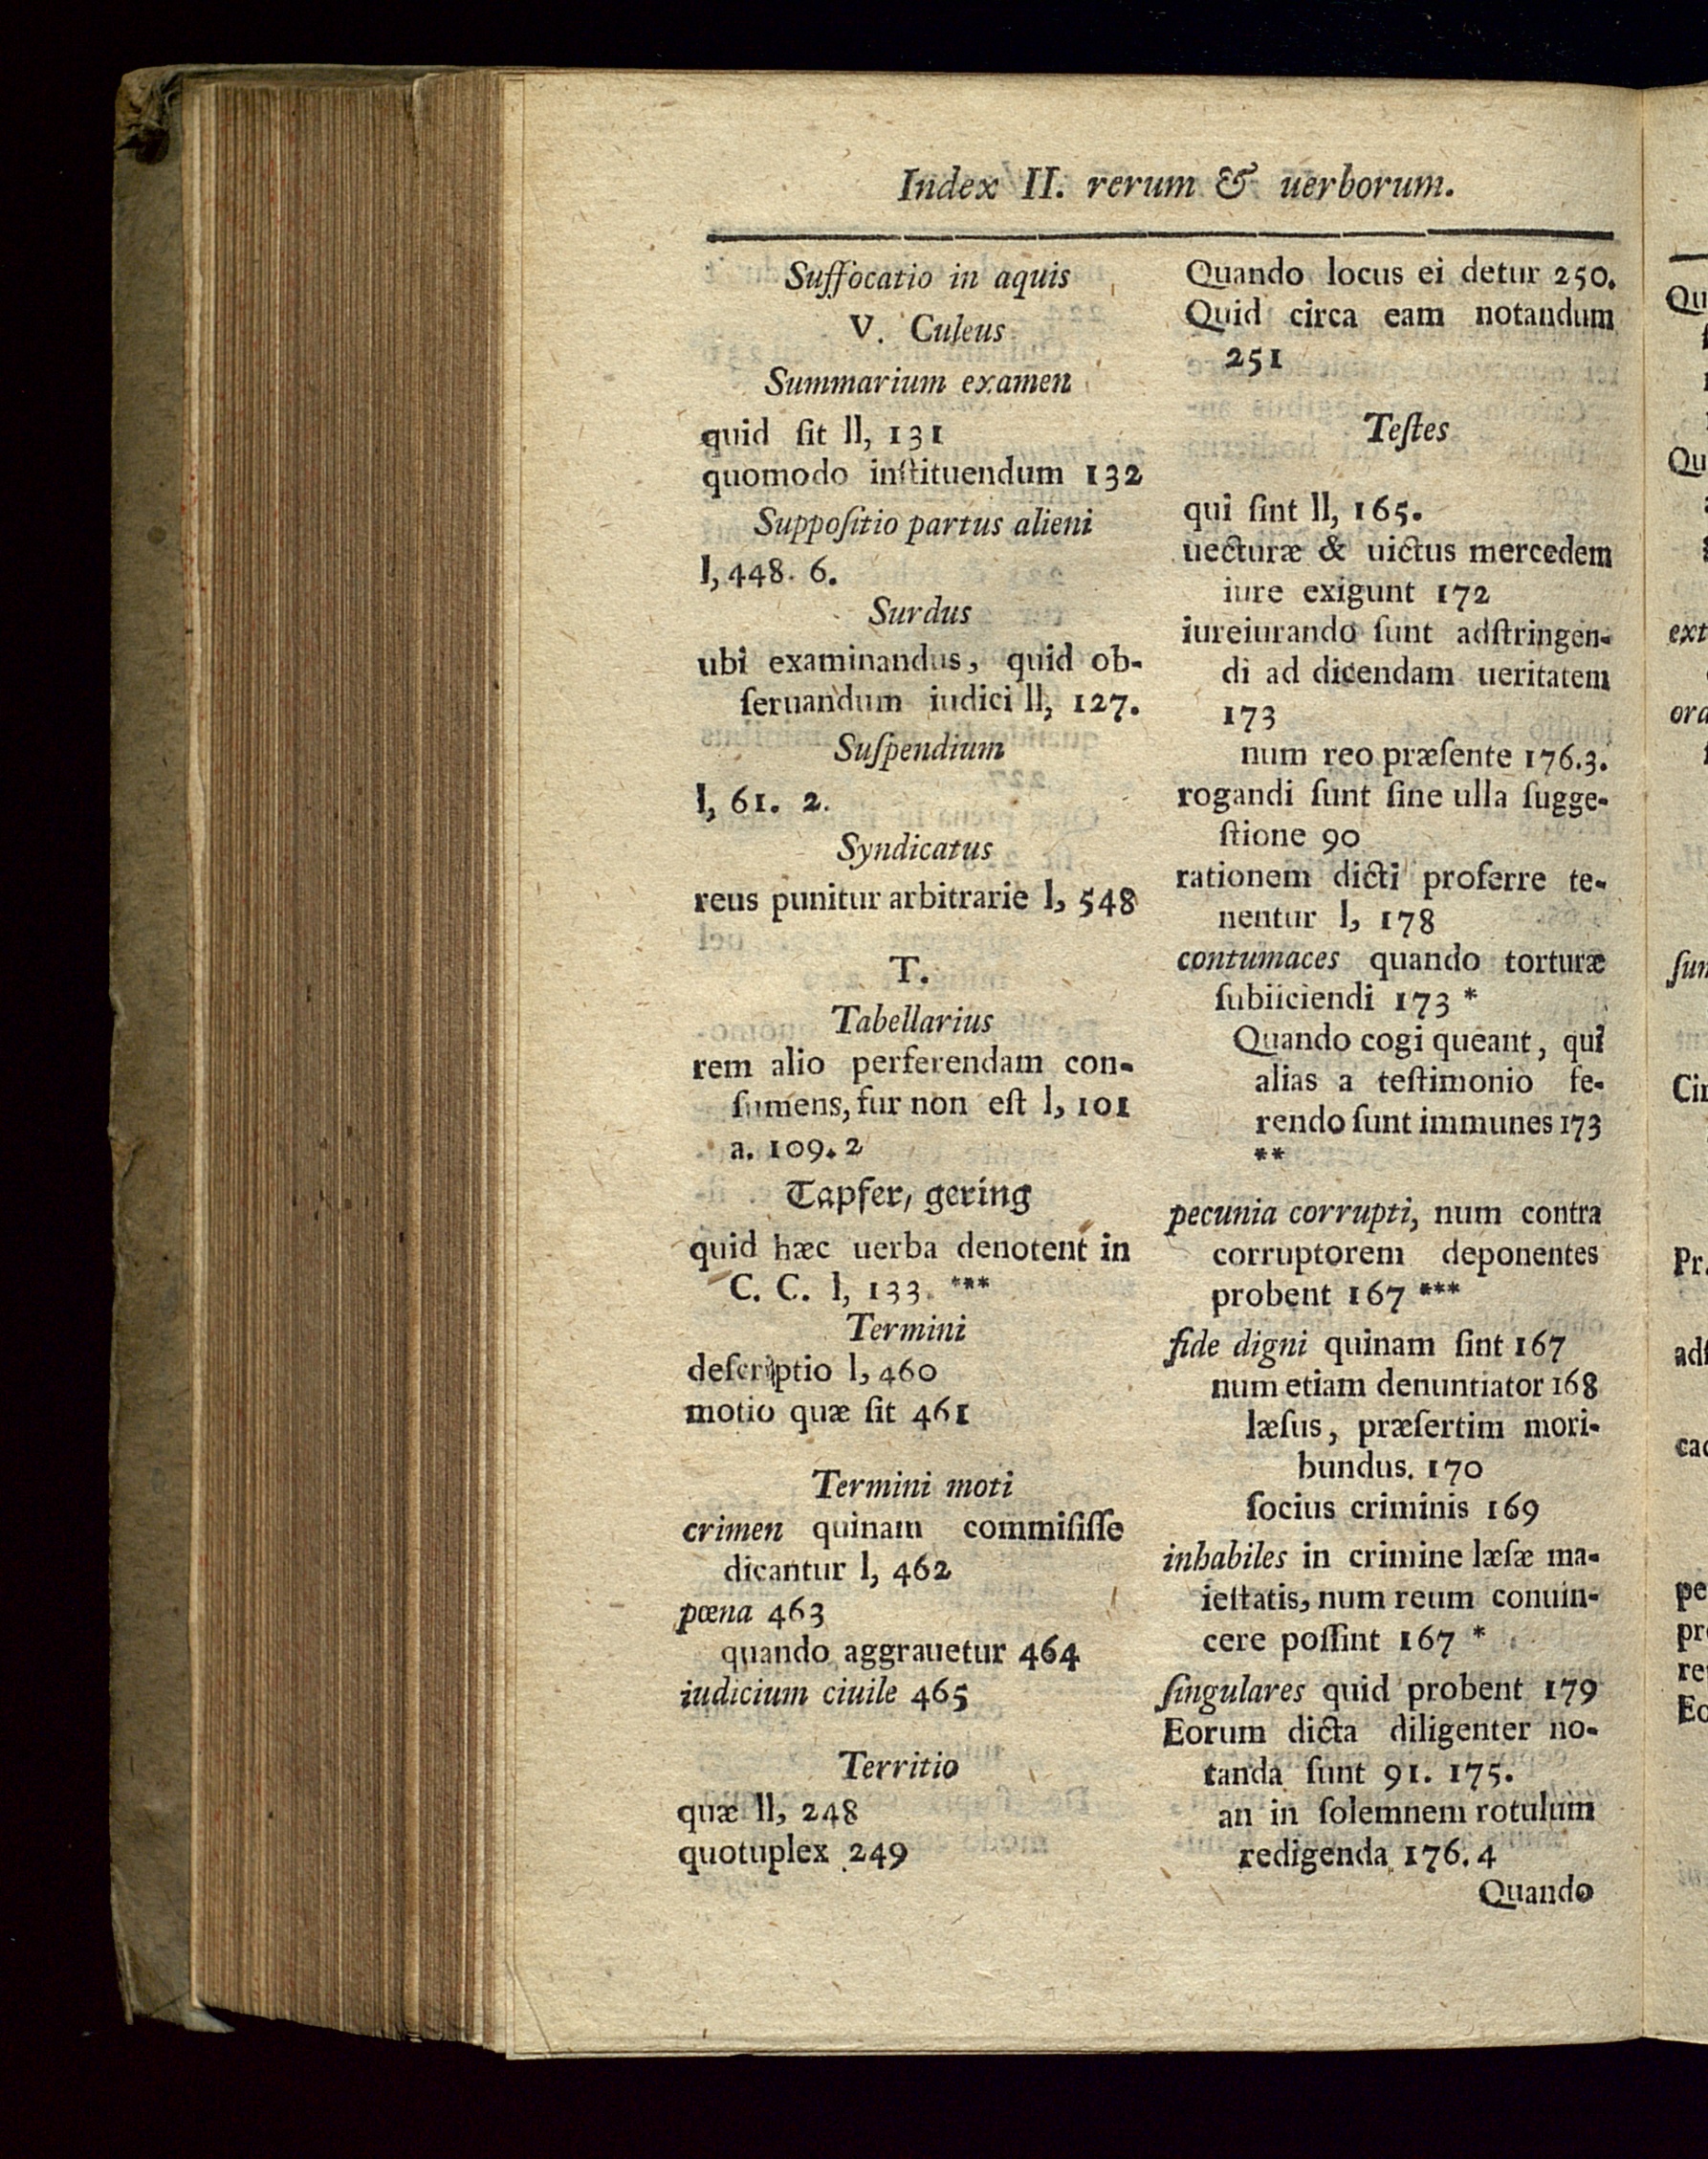 Index II. rerum & uerborum.
Suffocatio in aquis
V. Culeus
Summarium examen
quid ſit ll, 131
quomodo inſtituendum 132
Suppoſitio partus alieni
l, 448. 6.
Surdus
ubi examinandus, quid ob-
ſeruandum iudici ll, 127.
Suſpendium
l, 61. 2.
Syndicatus
reus punitur arbitrarie l, 548
T.
Tabellarius
rem alio perferendam con-
ſumens, fur non eſt l, 101
a. 109. 2
Tapfer, gering
quid hæc uerba denotent in
C. C. l, 133. ***
Termini
deſcriptio l, 460
motio quæ ſit 461
Termini moti
crimen quinam commiſiſſe
dicantur l, 462
pœna 463
quando aggrauetur 464
iudicium ciuile 465
Territio
quæ ll, 248
quotuplex 249
Quando locus ei detur 250.
Quid circa eam notandum
251
Teſtes
qui ſint ll, 165.
uecturæ & uictus mercedem
iure exigunt 172
iureiurando ſunt adſtringen-
di ad dicendam ueritatem
173
num reo præſente 176.3.
rogandi ſunt ſine ulla ſugge-
ſtione 90
rationem dicti proferre te-
nentur l, 178
contumaces quando torturæ
ſubiiciendi 173 *
Quando cogi queant, qui
alias a teſtimonio fe-
rendo ſunt immunes 173
**
pecunia corrupti, num contra
corruptorem deponentes
probent 167 ***
fide digni quinam ſint 167
num etiam denuntiator 168
læſus, præſertim mori-
bundus. 170
ſocius criminis 169
inhabiles in crimine læſæ ma-
ieſtatis, num reum conuin-
cere poſſint 167 *
ſingulares quid probent 179
Eorum dicta diligenter no-
tanda ſunt 91. 175.
an in ſolemnem rotulum
redigenda 176. 4
Quando